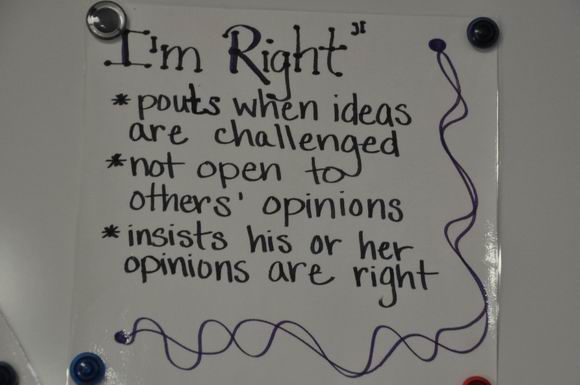 I'm Right"
* pouts when ideas
are challenged
* not open to
others' opinions
* insists his or her
opinions are right